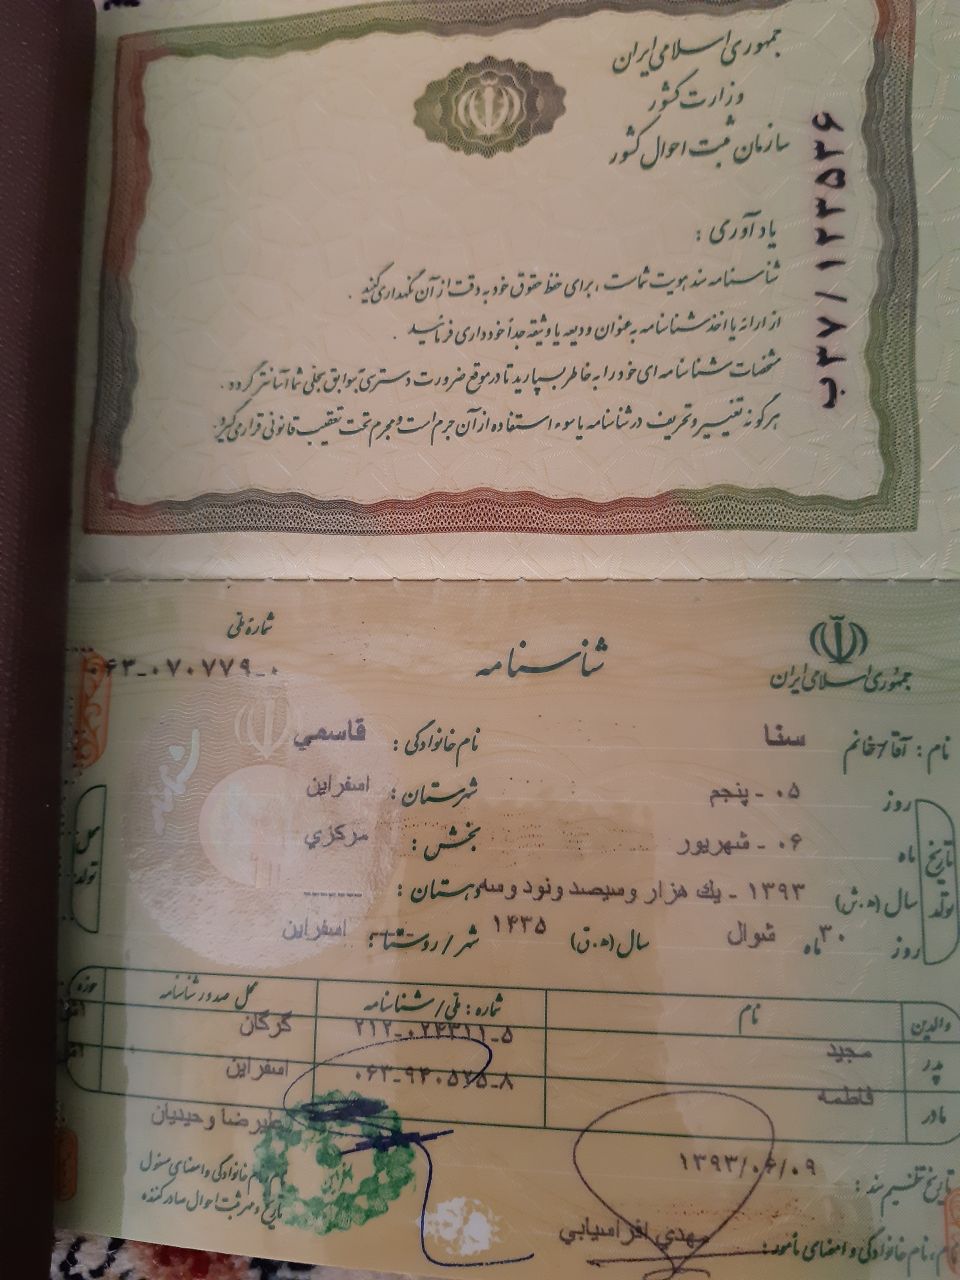 جمهوری اسلامی ایران
وزارت کشور
سازمان ثبت احوال کشور
ب۳۷/۱۲۳۵۳۶
یادآوری :
شناسنامه سند هویت شماست ، برای حفظ حقوق خود به دقت از آن نگهداری کنید .
از ارائه یا اخذ شناسنامه به عنوان ودیعه یا وثیقه جداً خودداری فرمائید .
مشخصات شناسنامه ای خود را به خاطر بسپارید تا در موقع ضرورت دسترسی بسوابق سجلی شما آسانتر گردد .
هرگونه تغییر و تحریف در شناسنامه یا سوء استفاده از آن جرم است و مجرم تحت تعقیب قانونی قرار می گیرد .
شماره ملی
۰۶۳-۰۷۰۷۷۹-۰
شناسنامه
جمهوری اسلامی ایران
نام : آقا/خانم سنا نام خانوادگی : قاسمي
تاریخ تولد
روز ۰۵ - پنجم
ماه ۰۶ - شهریور
سال (ه.ش) ۱۳۹۳ - یك هزار و سیصد و نود و سه
روز ۳۰ ماه شوال سال (ه.ق) ۱۴۳۵
محل تولد
شهرستان : اسفراین
بخش : مرکزي
دهستان : -------
شهر/روستا : اسفراین
والدین نام شماره : ملی/شناسنامه محل صدور شناسنامه حوزه
پدر مجید ۲۱۲-۰۲۴۳۱۱-۵ گرگان
مادر فاطمه ۰۶۳-۹۴۰۵۲۵-۸ اسفراین
تاریخ تنظیم سند : ۱۳۹۳/۰۶/۰۹
نام ، نام خانوادگی و امضای مأمور : مهدي افراسیابي
علیرضا وحیدیان
نام ، نام خانوادگی و امضای مسئول
تاریخ و مهر ثبت احوال صادر کننده